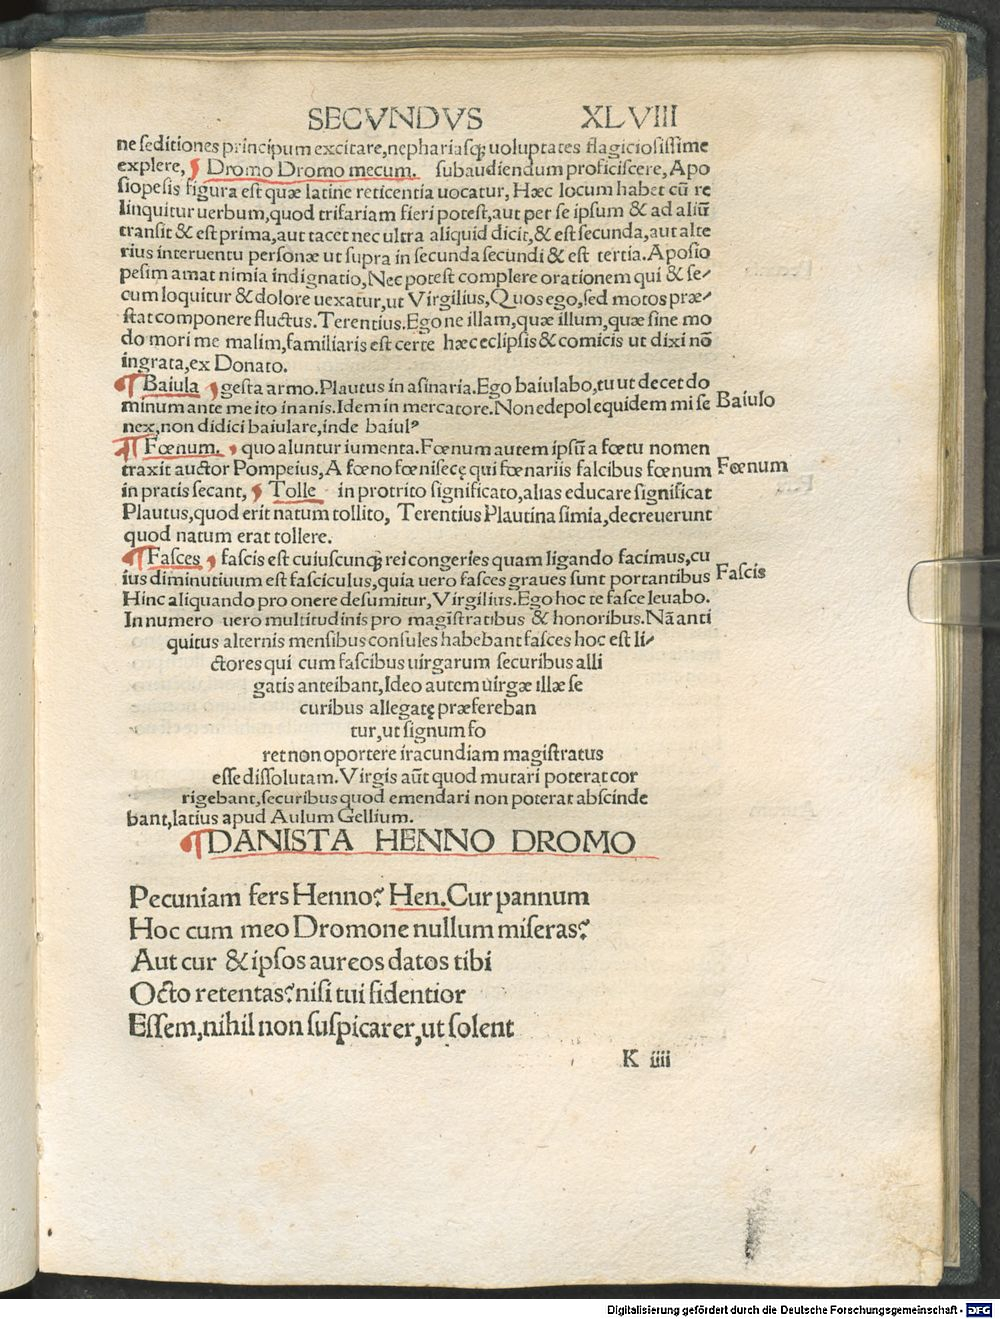 SECVNDVS XLVIII
ne ſeditiones principum excitare,nephariaſq; uoluptates flagicioſiſſime
explere, Dromo Dromo mecum. ſubaudiendum proficiſcere, Apo
ſiopeſis figura eſt quæ latine reticentia uocatur, Hæc locum habet cū re
linquitur uerbum,quod trifariam fieri poteſt,aut per ſe ipſum & ad aliū
tranſit & eſt prima,aut tacet nec ultra aliquid dicit,& eſt ſecunda,aut alte
rius interuentu perſonæ ut ſupra in ſecunda ſecundi & eſt tertia. Apoſio
peſim amat nimia indignatio,Nec poteſt complere orationem qui & ſe⸗
cum loquitur & dolore uexatur,ut Virgilius,Quos ego,ſed motos præ⸗
ſtat componere fluctus. Terentius.Ego ne illam,quæ illum,quæ ſine mo
do mori me malim,familiaris eſt certe hæc eclipſis & comicis ut dixi nō
ingrata,ex Donato.
¶ Baiula geſta armo.Plautus in aſinaria.Ego baiulabo,tu ut decet do
minum ante me ito inanis.Idem in mercatore.Non edepol equidem mi ſe Baiulo
nex,non didici baiulare,inde baiulꝰ
¶ Fœnum. quo aluntur iumenta.Fœnum autem ipſū a fœtu nomen
traxit auctor Pompeius,A fœno fœniſecę qui fœnariis falcibus fœnum Fœnum
in pratis ſecant, Tolle in protrito ſignificato,alias educare ſignificat
Plautus,quod erit natum tollito, Terentius Plautina ſimia,decreuerunt
quod natum erat tollere.
¶ Faſces faſcis eſt cuiuſcunq; rei congeries quam ligando facimus,cu
ius diminutiuum eſt faſciculus,quia uero faſces graues ſunt portantibus Faſcis
Hinc aliquando pro onere deſumitur,Virgilius.Ego hoc te faſce leuabo.
In numero uero multitudinis pro magiſtratibus & honoribus.Nā anti
quitus alternis menſibus conſules habebant faſces hoc eſt li⸗
ctores qui cum faſcibus uirgarum ſecuribus alli
gatis anteibant,Ideo autem uirgæ illæ ſe
curibus allegatę præfereban
tur,ut ſignum fo
ret non oportere iracundiam magiſtratus
eſſe diſſolutam.Virgis aūt quod mutari poterat cor
rigebant,ſecuribus quod emendari non poterat abſcinde
bant,latius apud Aulum Gellium.
¶ DANISTA HENNO DROMO
Pecuniam fers Henno? Hen.Cur pannum
Hoc cum meo Dromone nullum miſeras?
Aut cur & ipſos aureos datos tibi
Octo retentas? niſi tui fidentior
Eſſem,nihil non ſuſpicarer,ut ſolent
K iiii
Digitalisierung gefördert durch die Deutsche Forschungsgemeinschaft - DFG